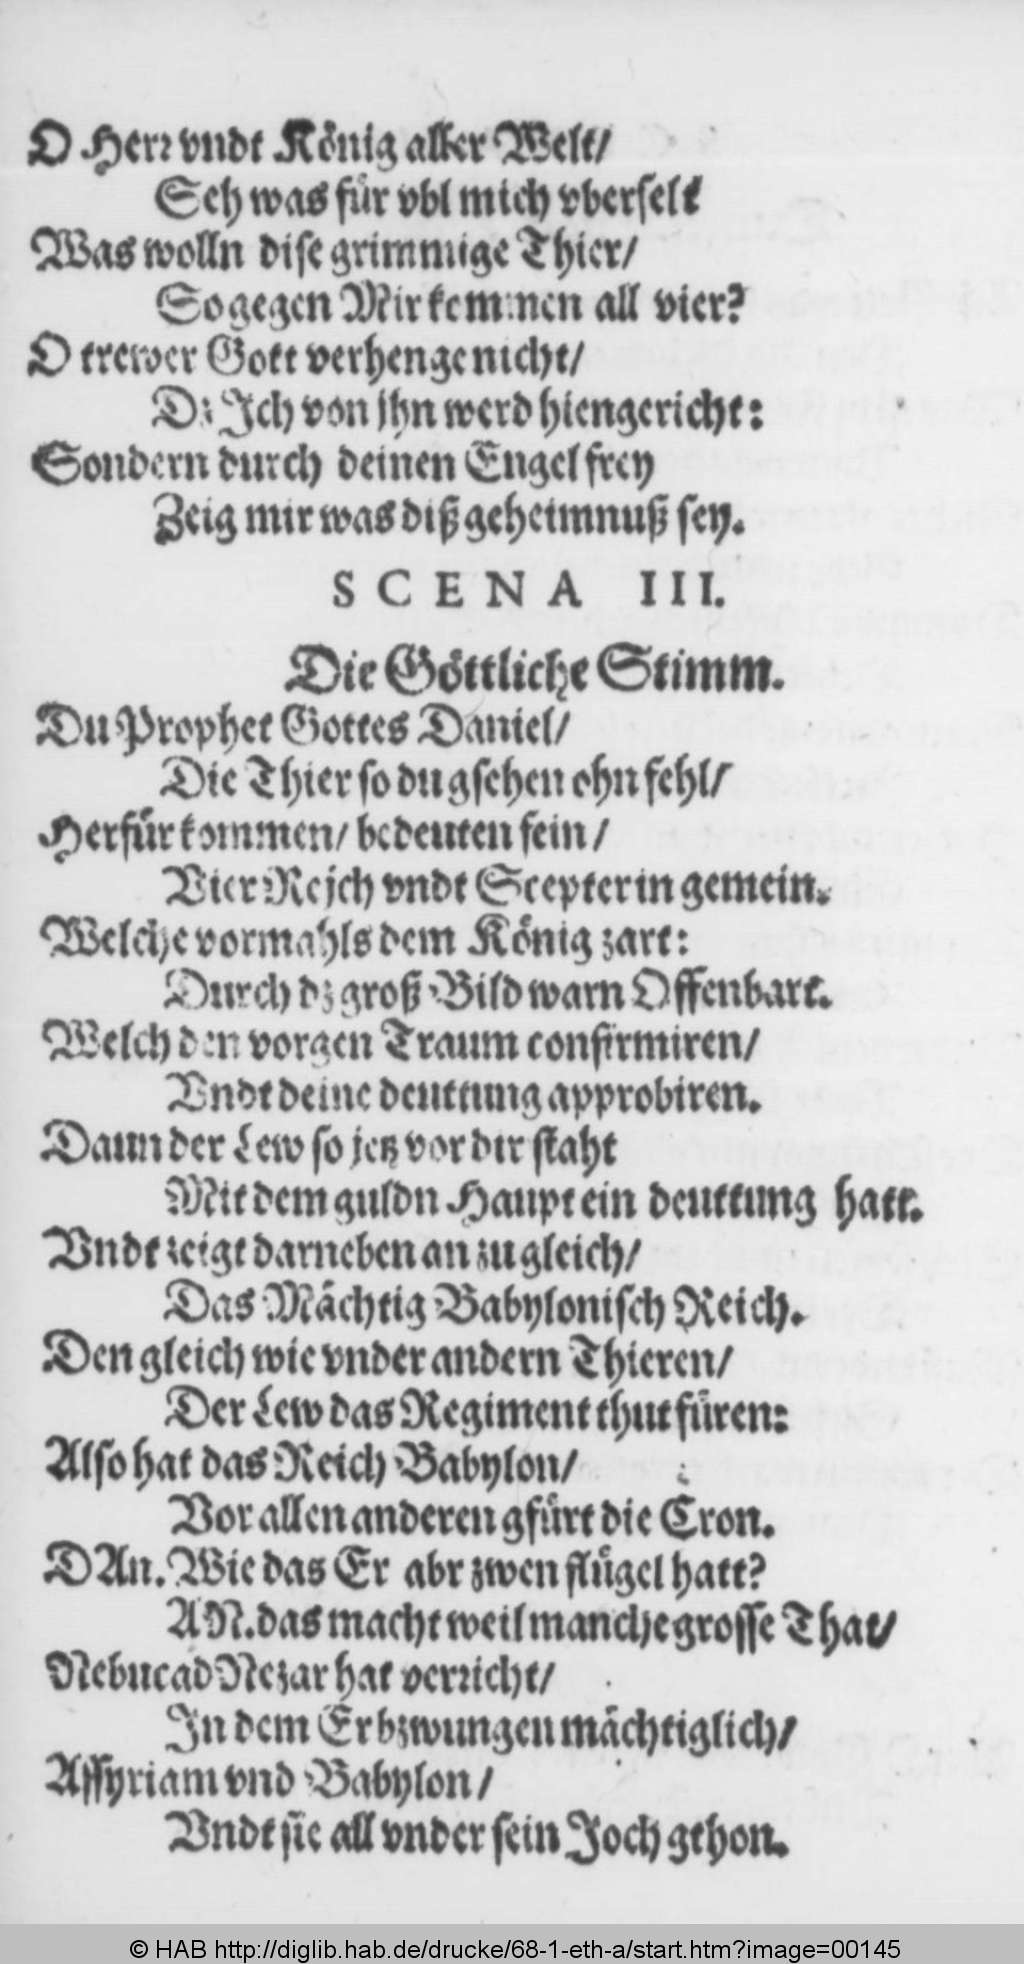 O Herr vndt König aller Welt/
Seh was für vbl mich vberfelt
Was wolln dise grimmige Thier/
So gegen Mir kommen all vier?
O trewer Gott verhenge nicht/
Dz Jch von jhn werd hiengericht:
Sondern durch deinen Engel frey
Zeig mir was diß geheimnuß sey.
SCENA III.
Die Göttliche Stimm.
Du Prophet Gottes Daniel/
Die Thier so du gsehen ohn fehl/
Herfür kommen/ bedeuten fein/
Vier Rejch vndt Scepter in gemein.
Welche vormahls dem König zart:
Durch dz groß Bild warn Offenbart.
Welch den vorgen Traum confirmiren/
Vndt deine deuttung approbiren.
Dann der Lew so jetz vor dir staht
Mit dem guldn Haupt ein deuttung hatt.
Vndt zeigt darneben an zu gleich/
Das Mächtig Babylonisch Reich.
Den gleich wie vnder andern Thieren/
Der Lew das Regiment thut füren:
Also hat das Reich Babylon/
Vor allen anderen gfürt die Cron.
DAn. Wie das Er abr zwen flügel hatt?
AN. das macht weil manche grosse That/
NebucadNezar hat verricht/
Jn dem Er bzwungen mächtiglich/
Assyriam vnd Babylon/
Vndt sie all vnder sein Joch gthon.
© HAB http://diglib.hab.de/drucke/68-1-eth-a/start.htm?image=00145